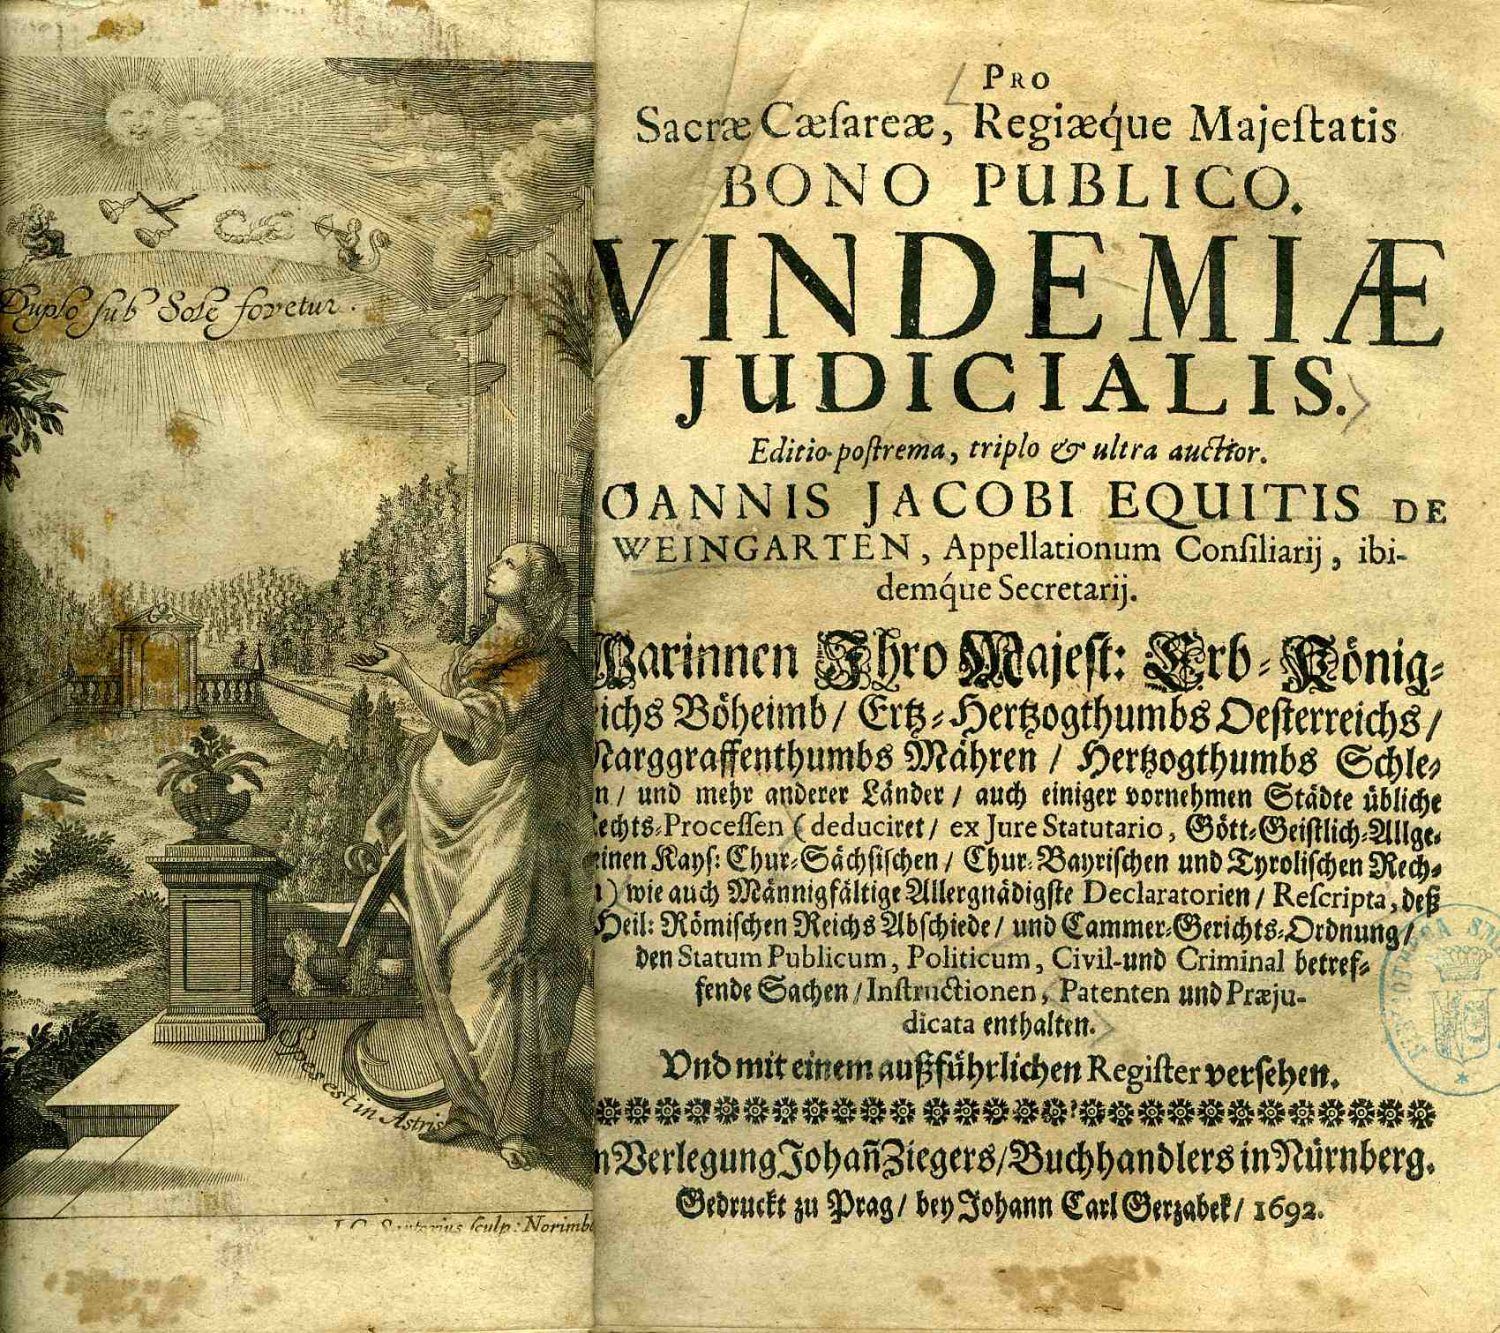 Duplo sub Sole fovetur.
Spes est in Astris
I. C. Sartorius sculp: Norimb
PRO
Sacræ Cæſareæ, Regiæq́ue Majeſtatis
BONO PUBLICO.
VINDEMIÆ
JUDICIALIS.
Editio poſtrema, triplo & ultra auctior.
OANNIS JACOBI EQUITIS DE
WEINGARTEN, Appellationum Conſiliarij, ibi-
demq́ue Secretarij.
Warinnen Ihro Majeſt: Erb-König-
ichs Böheimb/ Ertz-Hertzogthumbs Oeſterreichs/
Marggraffenthumbs Mähren / Hertzogthumbs Schle-
n/ und mehr anderer Länder/ auch einiger vornehmen Städte übliche
echts-Proceſſen (deduciret/ ex Jure Statutario, Gött-Geiſtlich-Allge-
einen Kayſ: Chur-Sächſiſchen/ Chur-Bayriſchen und Tyroliſchen Rech-
) wie auch Männigfältige Allergnädigſte Declaratorien/ Reſcripta, deß
Heil: Römiſchen Reichs Abſchiede/ und Cammer-Gerichts-Ordnung/
den Statum Publicum, Politicum, Civil-und Criminal betref-
fende Sachen/ Inſtructionen, Patenten und Præju-
dicata enthalten.
Vnd mit einem außführlichen Regiſter verſehen.
n Verlegung Johañ Ziegers/ Buchhandlers in Nürnberg.
Gedruckt zu Prag/ bey Johann Carl Gerzabek/ 1692.